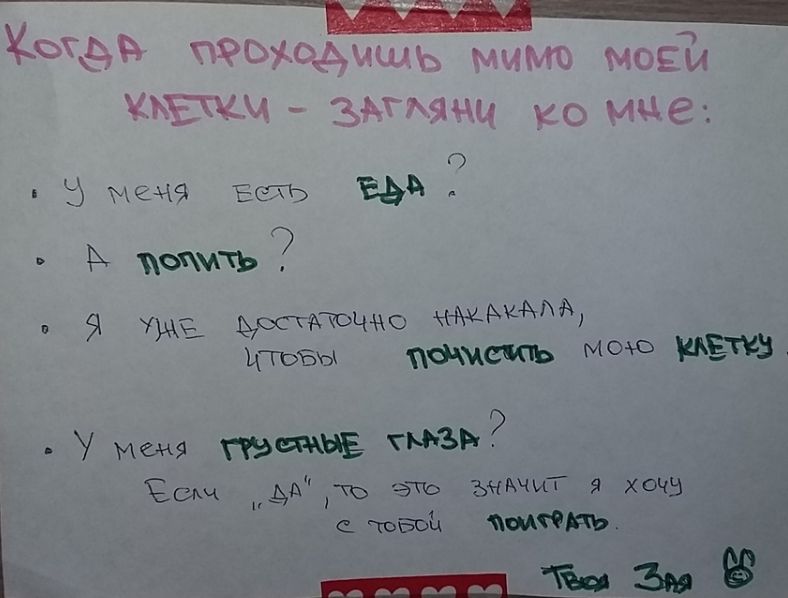 Когда проходишь мимо моей
клетки - загляни ко мне:
• У меня есть ЕДА?
• А ПОПИТЬ?
• Я уже достаточно накакала,
чтобы ПОЧИСТИТЬ мою КЛЕТКУ.
• У меня ГРУСТНЫЕ ГЛАЗА?
Если „ДА", то это значит я хочу
с тобой ПОИГРАТЬ.
Твоя Зая